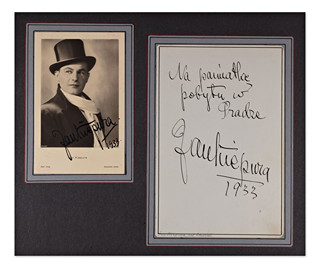 Jan Kiepura
1933
Na pamiątkę
pobytu w
Pradze
Jan Kiepura
1933